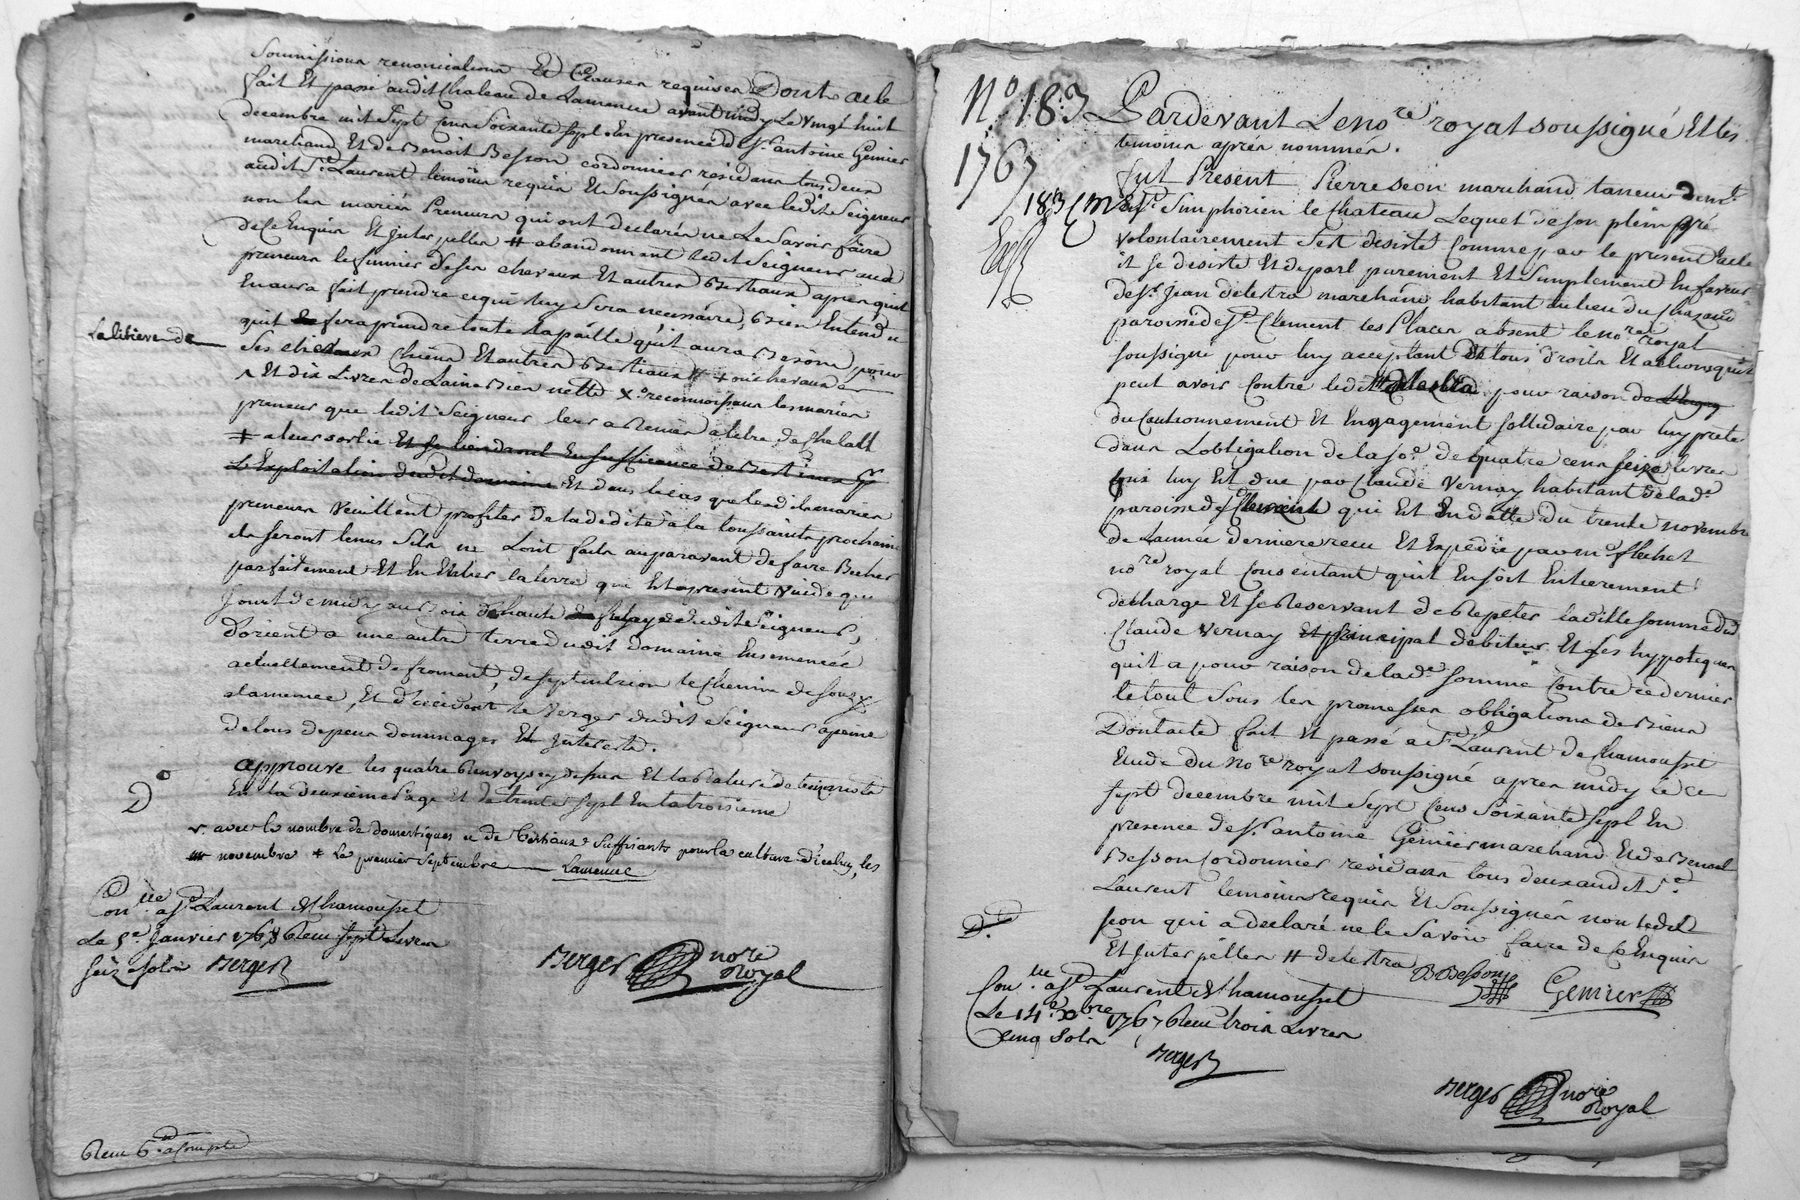 Soumissions renonciations Et Clauses requises Dont acte
fait Et passé audit Chateau de Lamenue avant midy Le vingt huit
decembre mil Sept Cens Soixante Sept En presence de Sr. antoine Gemier
marchand Et de Benoit Besson cordonnier residans tous deux
audit St. Laurent temoins requis Et Soussignés avec ledit Seigneur
non les mariés Preneurs qui ont declarés ne Le Savoir faire
de Ce Enquis Et Interpellés # abandonnant ledit Seigneur aud
preneurs le fumier de ses chevaux Et autres Bestiaux apres quil
En aura fait prendre ce qui luy Sera necessaire, Bien Entendu
quil fera prendre toute la paille quil aura Besoin pour
La litiere de
Ses Chiens Et autres Bestiaux # + ou chevaux
Et dix Livres de Laine Bien nette X. reconnoissans les mariés
preneur que ledit Seigneur leur a Remis a titre de Chelatt
# a leur sortie Et
L'Exploitation dudit domaine Et dans le cas que lesdits mariés
preneurs veuillent profiter de la dedite a la toussaints prochaine
ils seront tenus Sils ne Sont faits auparavant de faire Becher
parfaitement Et En Etat la terre qui Est a present vuide qui
Jouit de midy au Bois de haute dudit Seigneur,
d'orient a une autre terre dudit domaine Ensemencée
actuellement de froment, de septentrion le Chemin de Souzy
a lamenue, Et d'occident le Verger dudit Seigneur a peine
de tous depens dommages Et Interests.
approuvé les quatre Renvoys cy dessus Et la Rature de
En la deuxieme page Et de trente Sept En la troisieme
D°
v. avec le nombre de domestiques et de Bestiaux Suffisants pour la culture d'iceluy, les
novembre + Le premier Septembre Lamenue
Conlle. a St. Laurent de Chamousset
Le 5e. Janvier 1768 Reçu Sept Livres
Seiz Sols Berger
Berger nore Royal
Reçu 6 a Compte
N° 183
1767
183
Pardevant Le nore. royal soussigné Et les
temoins apres nommés.
fut Present Pierre Seon marchand taneur demt.
En St. Simphorien le Chateau Lequel de son plein gré
Volontairement S'est desisté Comme par le present acte
il se desiste Et depart purement Et Simplement En faveur
de Sr. Jean delestra marchand habitant au lieu du Chazaud
paroisse de St. Clement les Places absent le nore. royal
soussigné pour luy acceptant de tous droits Et actions quil
peut avoir Contre ledit delestra pour raison
du Cautionnement Et Engagement Sollidaire par luy preté
dans L'obligation de la so. de quatre cens seize livres
qui luy Est due par Claude Vernay habitant de lad.
paroisse de St Clement qui Est En datte du trente novembre
de L'année derniere recu Et Expedié par me. flechet
nore. royal Consentant quil En soit Entierement
dechargé Et se Reservant de Repeter la ditte somme dud
Claude Vernay Et principal debiteur Et ses hypotiques
quil a pour raison de lade. Somme Contre ce dernier
le tout Sous les promesses obligations de Biens
Dont acte fait Et passé a St. Laurent de Chamousset
Etude du Nore. royal soussigné apres midy Le
sept decembre mil Sept Cens Soixante Sept En
presence de Sr. antoine Gemier marchand Et de Benoit
Besson Cordonnier residans tous deux audit St.
Laurent temoins requis Et Soussignés non ledit
Seon qui a declaré ne le Savoir faire de Ce Enquis
Et Interpellés # delestra
B Besson Gemier
Conlle. a St. Laurent de Chamousset
Le 14e. Xbre 1767 Reçu trois Livres
Cinq Sols
Berger
Berger nore Royal